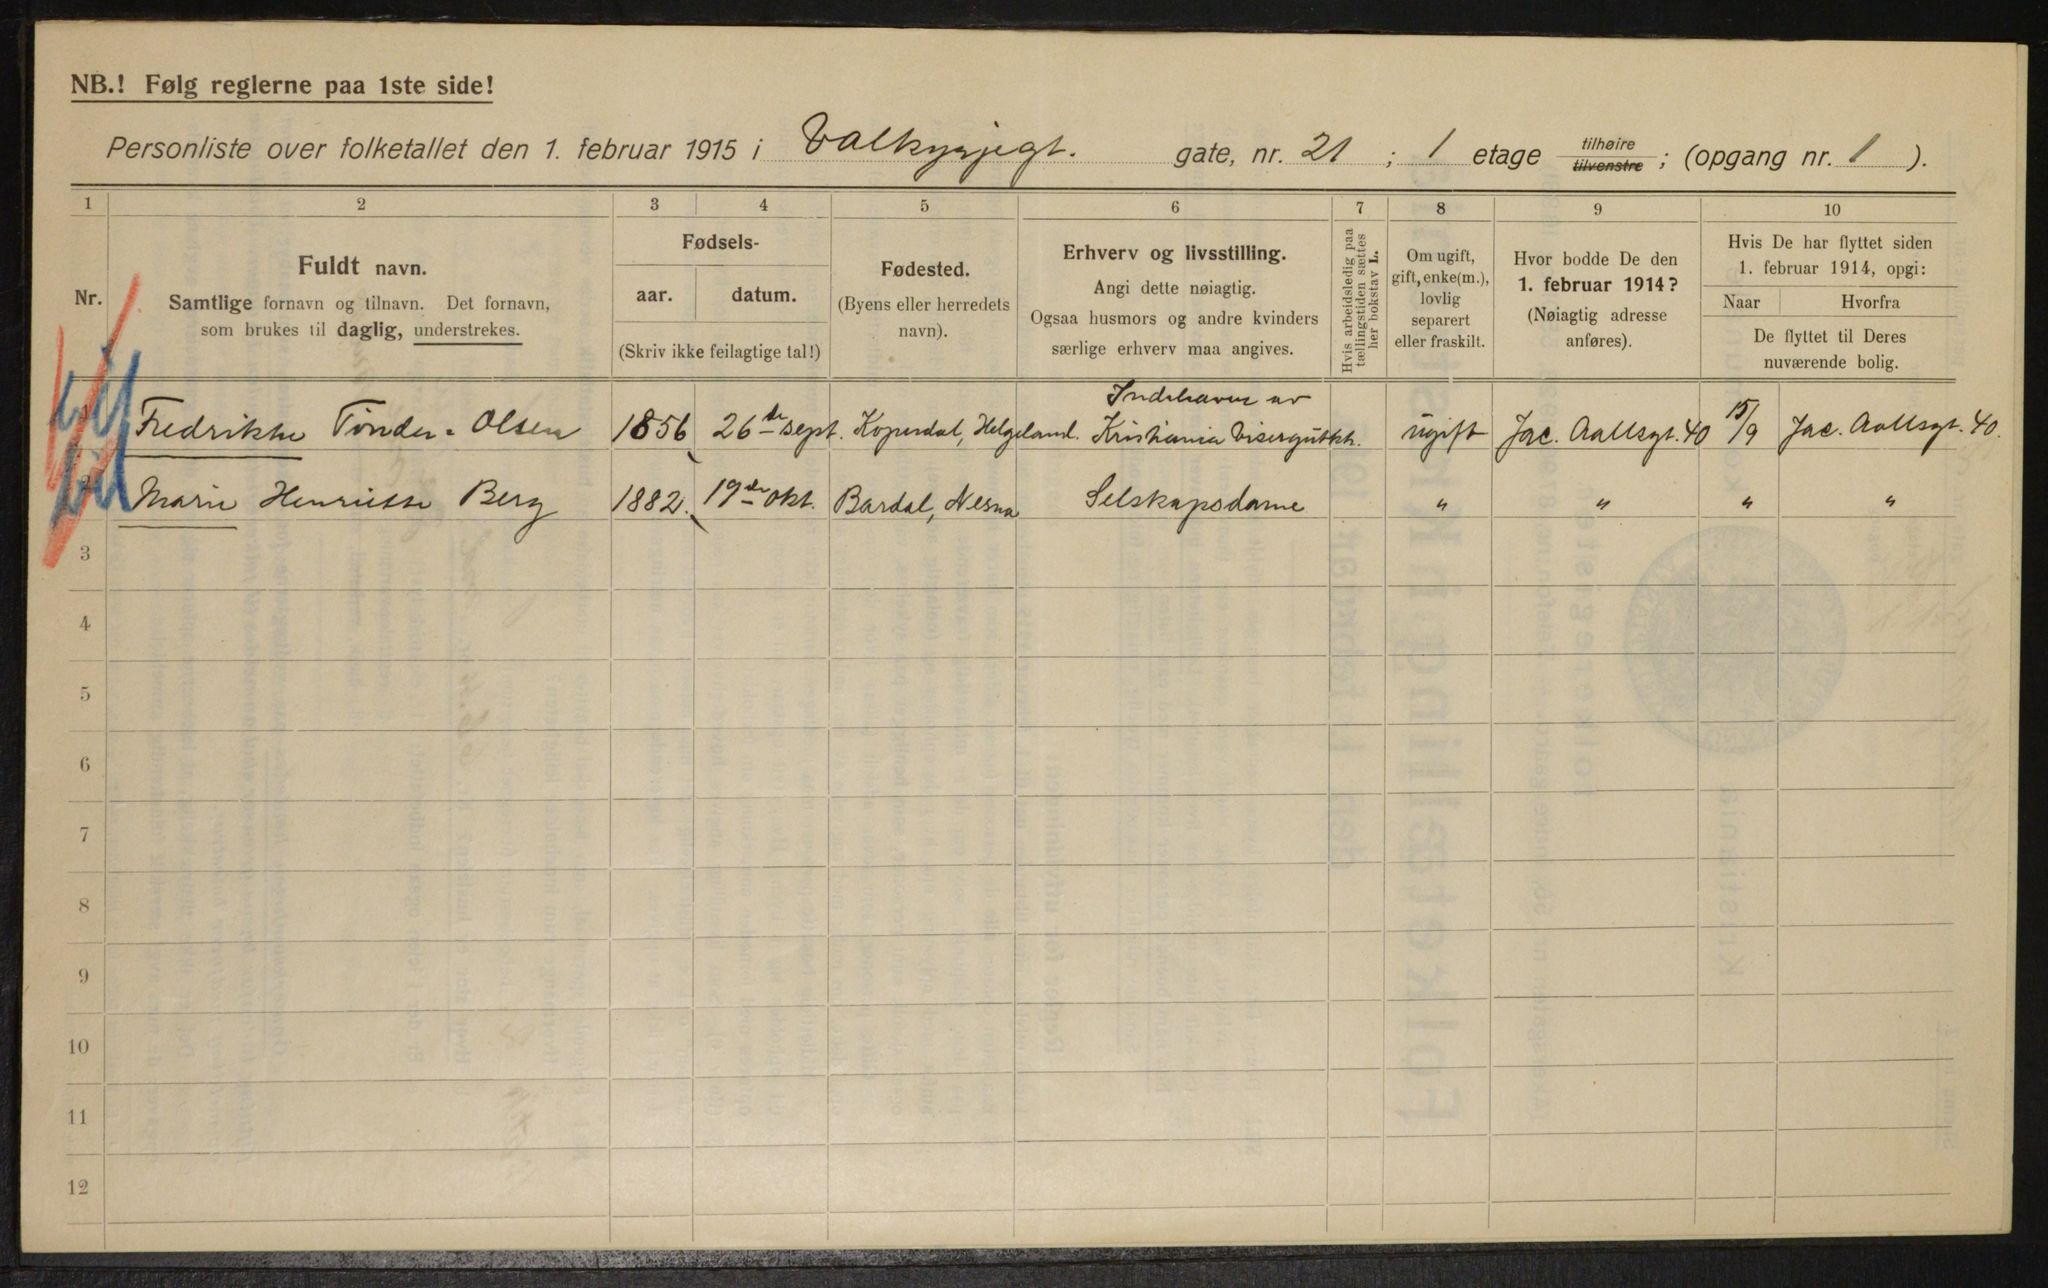 NB.! Følg reglerne paa 1ste side!
Personliste over folketallet den 1. februar 1915 i Valkyrjegt. gate, nr. 21 ; 1 etage tilhøire tilvenstre ; (opgang nr. 1 ).
1 2 3 4 5 6 7 8 9 10
Nr.
Fuldt navn.
Samtlige fornavn og tilnavn. Det fornavn,
som brukes til daglig, understrekes.
Fødsels-
aar. datum.
(Skriv ikke feilagtige tal!)
Fødested.
(Byens eller herredets
navn).
Erhverv og livsstilling.
Angi dette nøiagtig.
Ogsaa husmors og andre kvinders
særlige erhverv maa angives.
Hvis arbeidsledig paa
tællingstiden sættes
her bokstav L.
Om ugift,
gift, enke(m.),
lovlig
separert
eller fraskilt.
Hvor bodde De den
1. februar 1914?
(Nøiagtig adresse
anføres).
Hvis De har flyttet siden
1. februar 1914, opgi:
Naar Hvorfra
De flyttet til Deres
nuværende bolig.
Indehaver av
1 Fredrikke Tönder-Olsen 1856 26de sept. Koperdal, Helgeland. Kristiania Visergutkt. ugift Jac. Aallsgt. 40 15/9 Jac. Aallsgt. 40.
2 Marie Henriette Berg 1882. 19de okt. Bardal, Nesna Selskapsdame " " " "
3
4
5
6
7
8
9
10
11
12